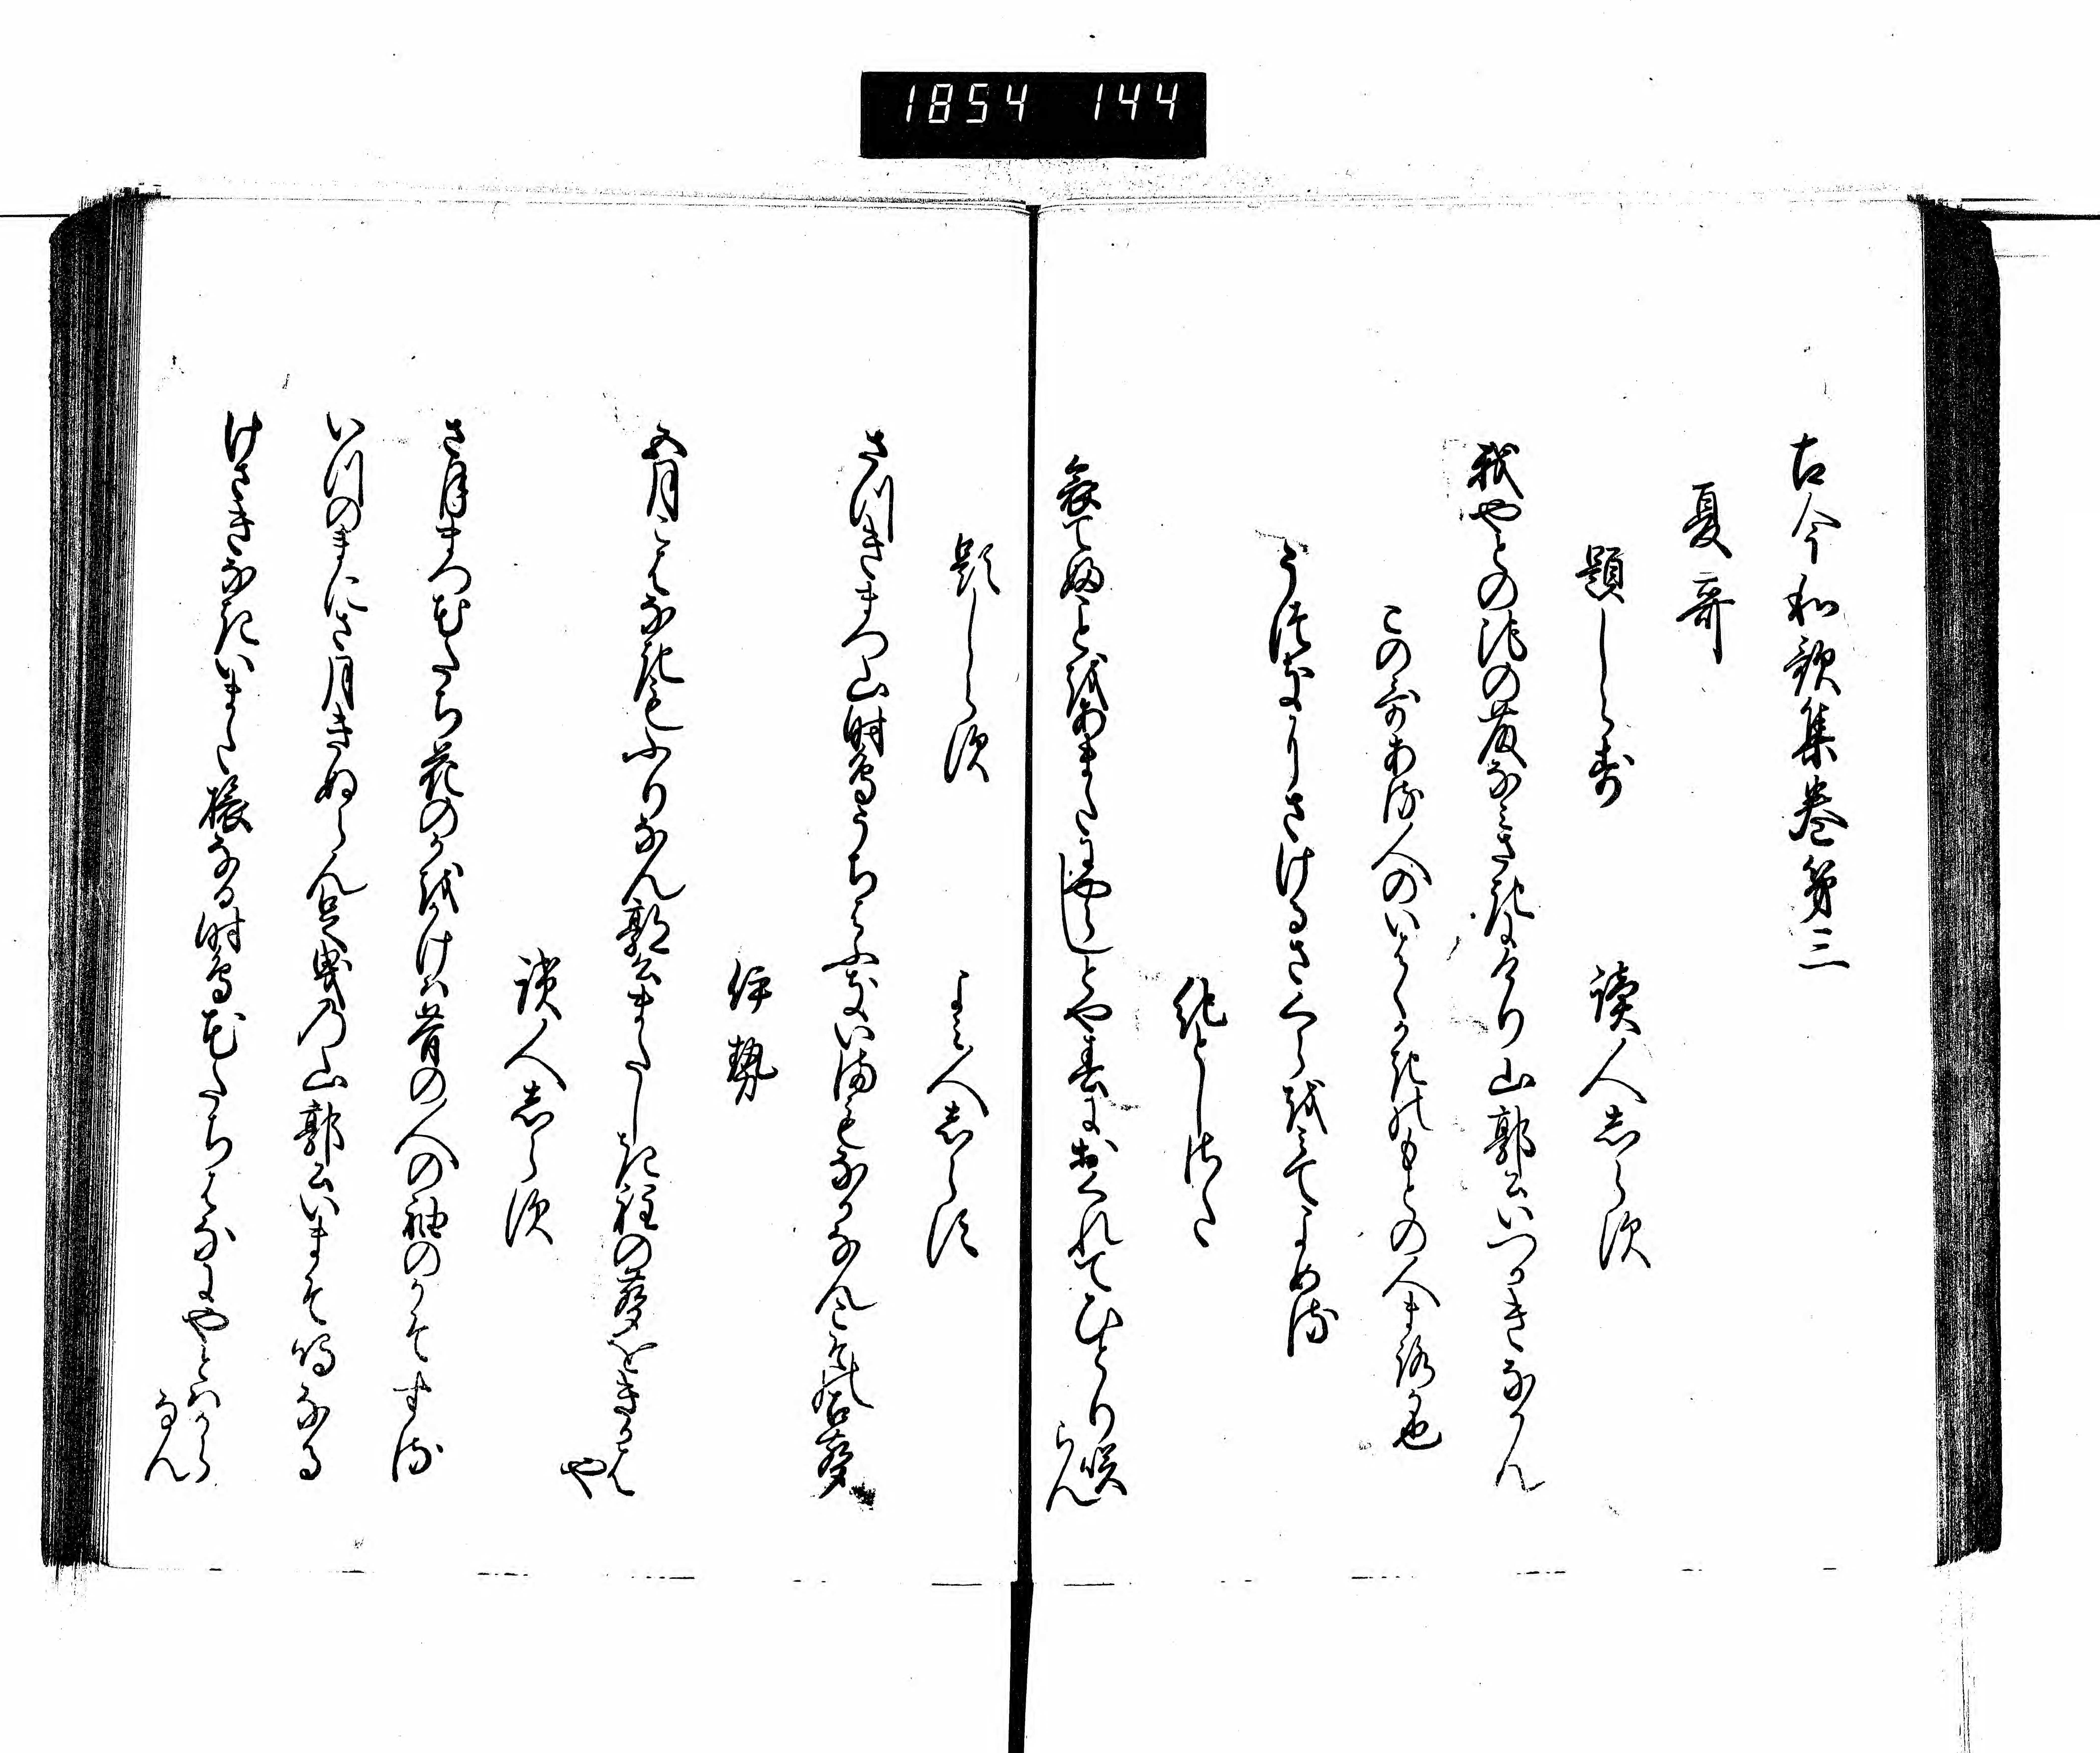 1854 144
古今和歌集巻第三
夏哥
題しらす 讀人志らす
我やとの池の藤なみさきにけり山郭公いつかきなかん
この哥ある人のいはくかきのもとの人まろか也
う月なりさけるさくらをみてよめる
紀としさた
あはれてふことをあまたにやらしとや春におくれてひとり咲らん
題しらす よみ人志らす
さつきまつ山時鳥うちはふきいまもなかなんこその古聲
伊勢
五月こはなきもふりなん郭公またしき程の聲をきかはや
讀人志らす
さ月まつ花たち花のかをかけは昔の人の袖のかそする
いつのまにさ月きぬらん足曳の山郭公いまそ鳴なる
けさきなきいまた旅なる時鳥花たちはなにやとはからなん